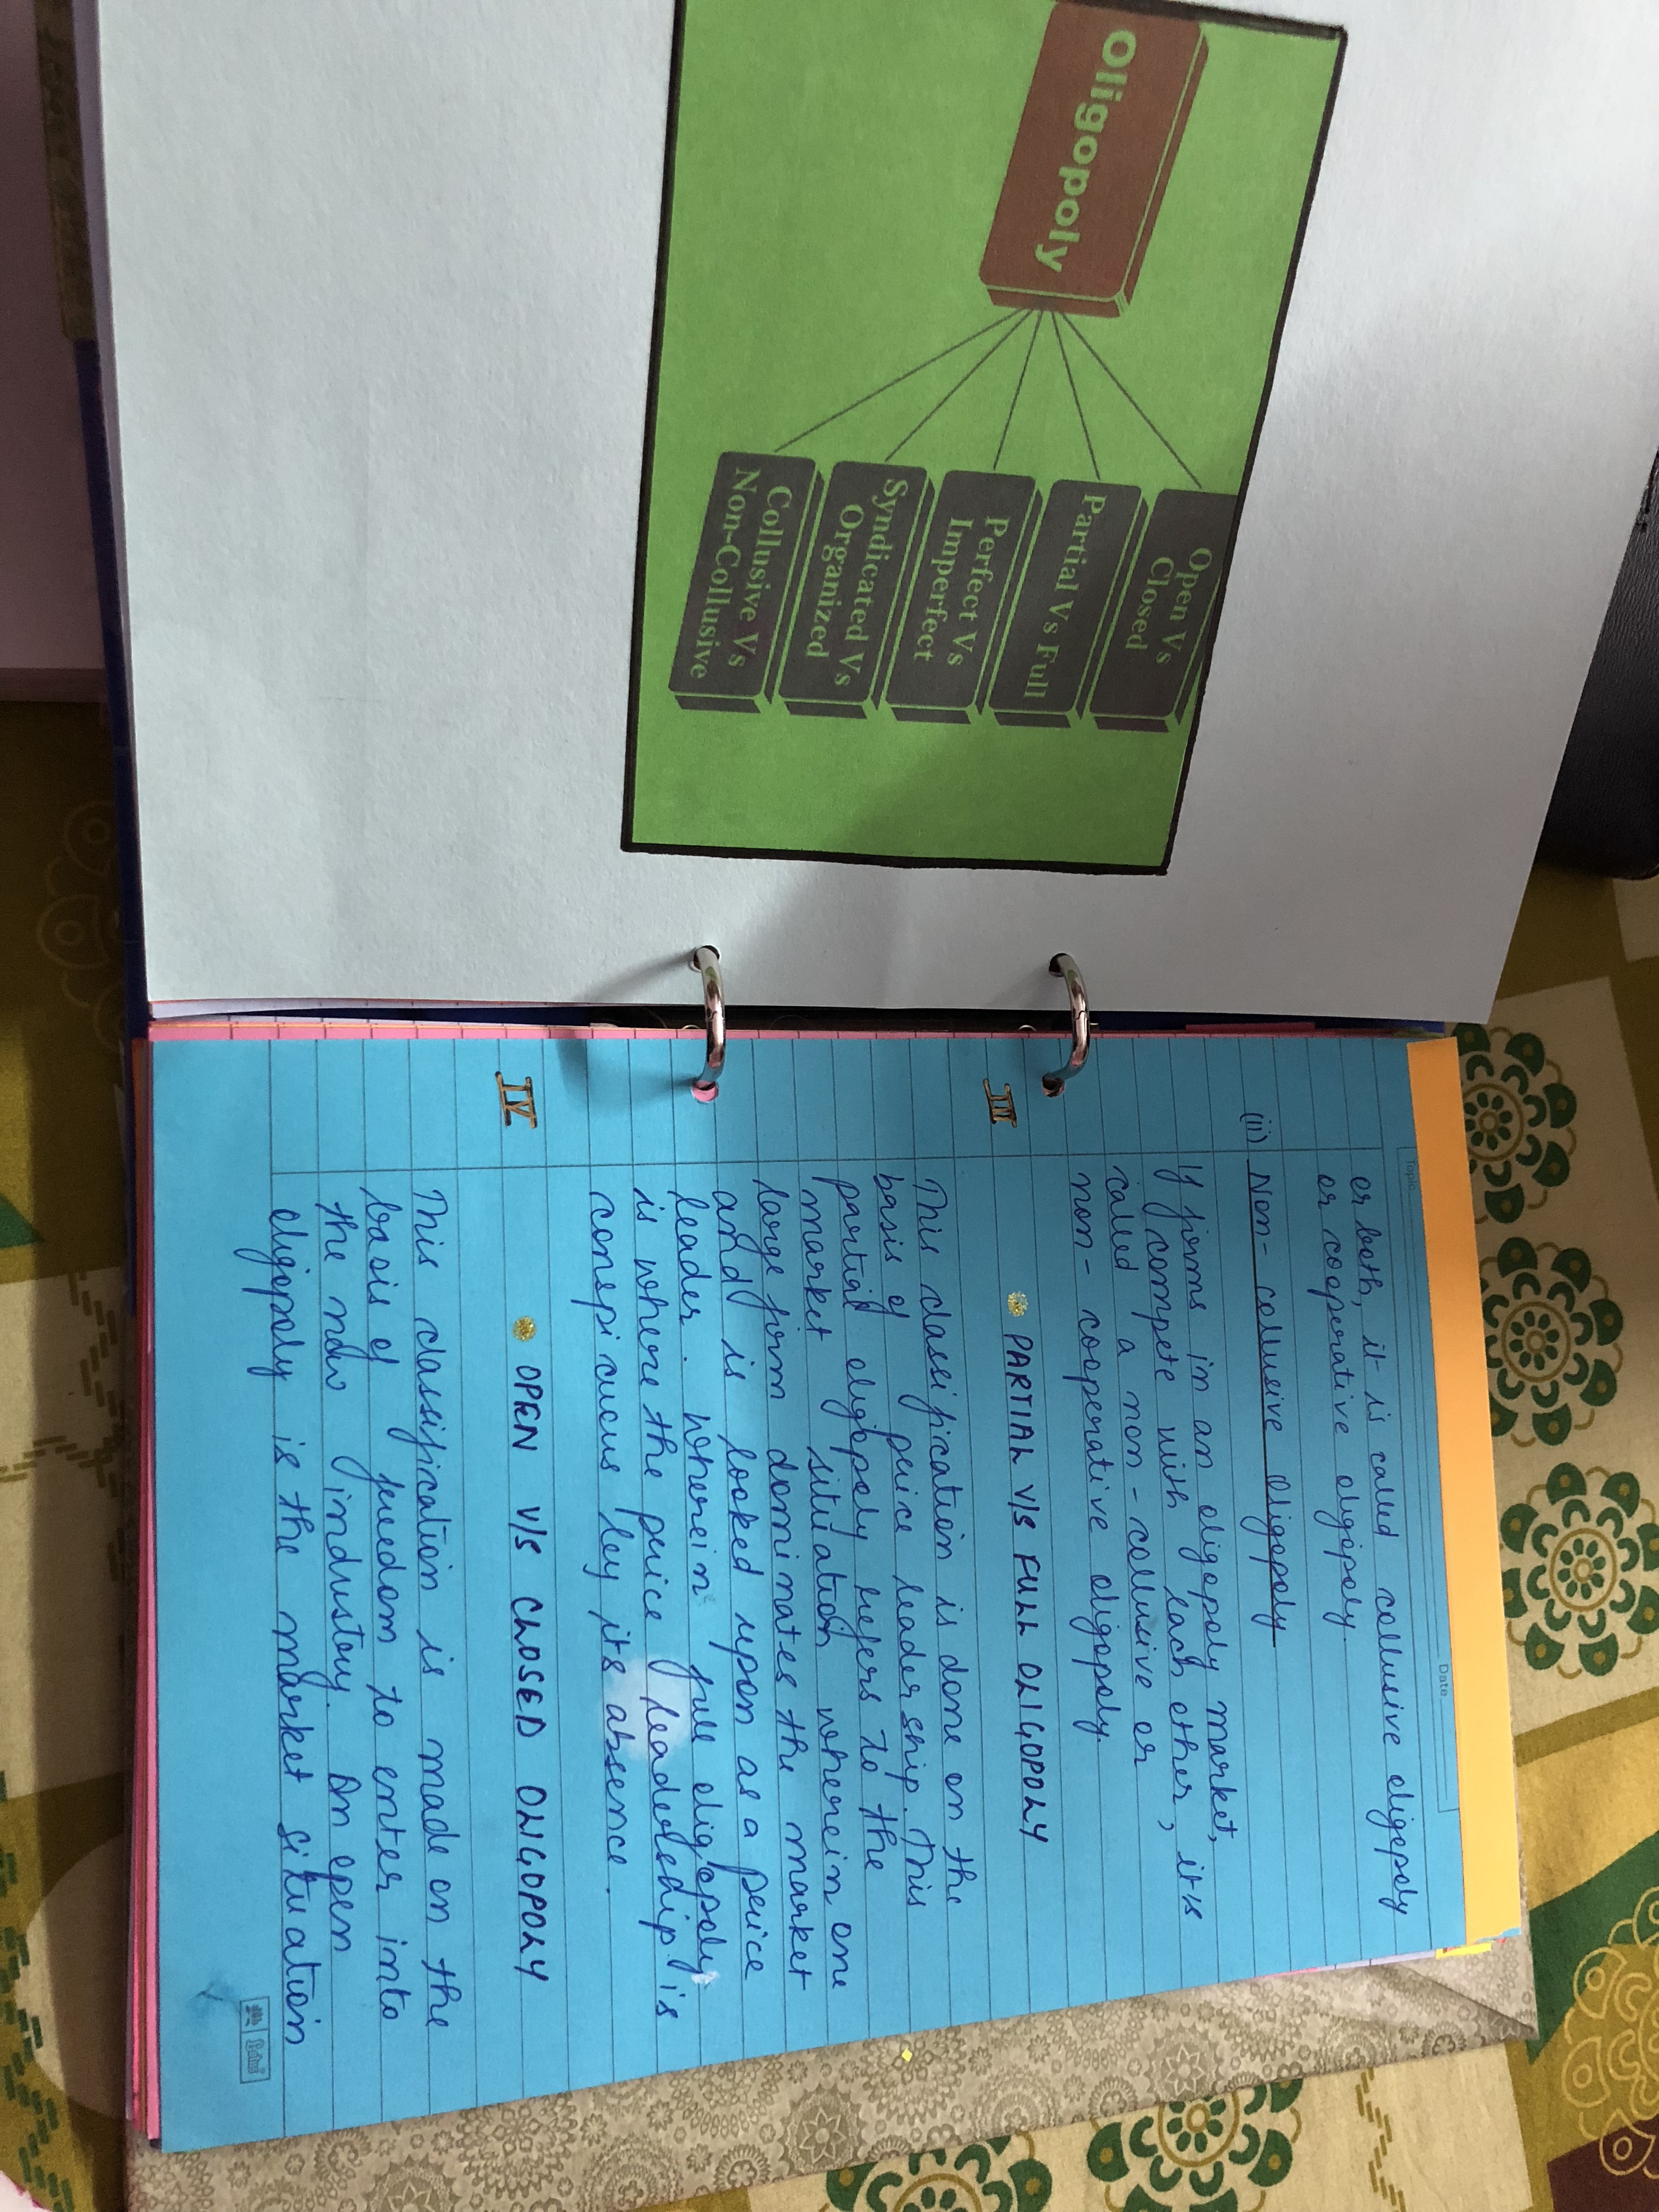 Oligopoly
Open Vs
Closed
Partial Vs Full
Perfect Vs
Imperfect
Syndicated Vs
Organized
Collusive Vs
Non-Collusive
Topic
Date
or both, it is called collusive oligopoly
or cooperative oligopoly.
(ii) Non-collusive Oligopoly
If firms in an oligopoly market,
compete with each other, it is
called a non-collusive or
non-cooperative oligopoly.
III • PARTIAL V/S FULL OLIGOPOLY
This classification is done on the
basis of price leadership. This
partial oligopoly refers to the
market situation wherein one
large firm dominates the market
and is looked upon as a price
leader. Wherein full oligopoly
is where the price leadership is
conspicuous by its absence.
IV • OPEN V/S CLOSED OLIGOPOLY
This classification is made on the
basis of freedom to enter into
the new industry. An open
oligopoly is the market situation